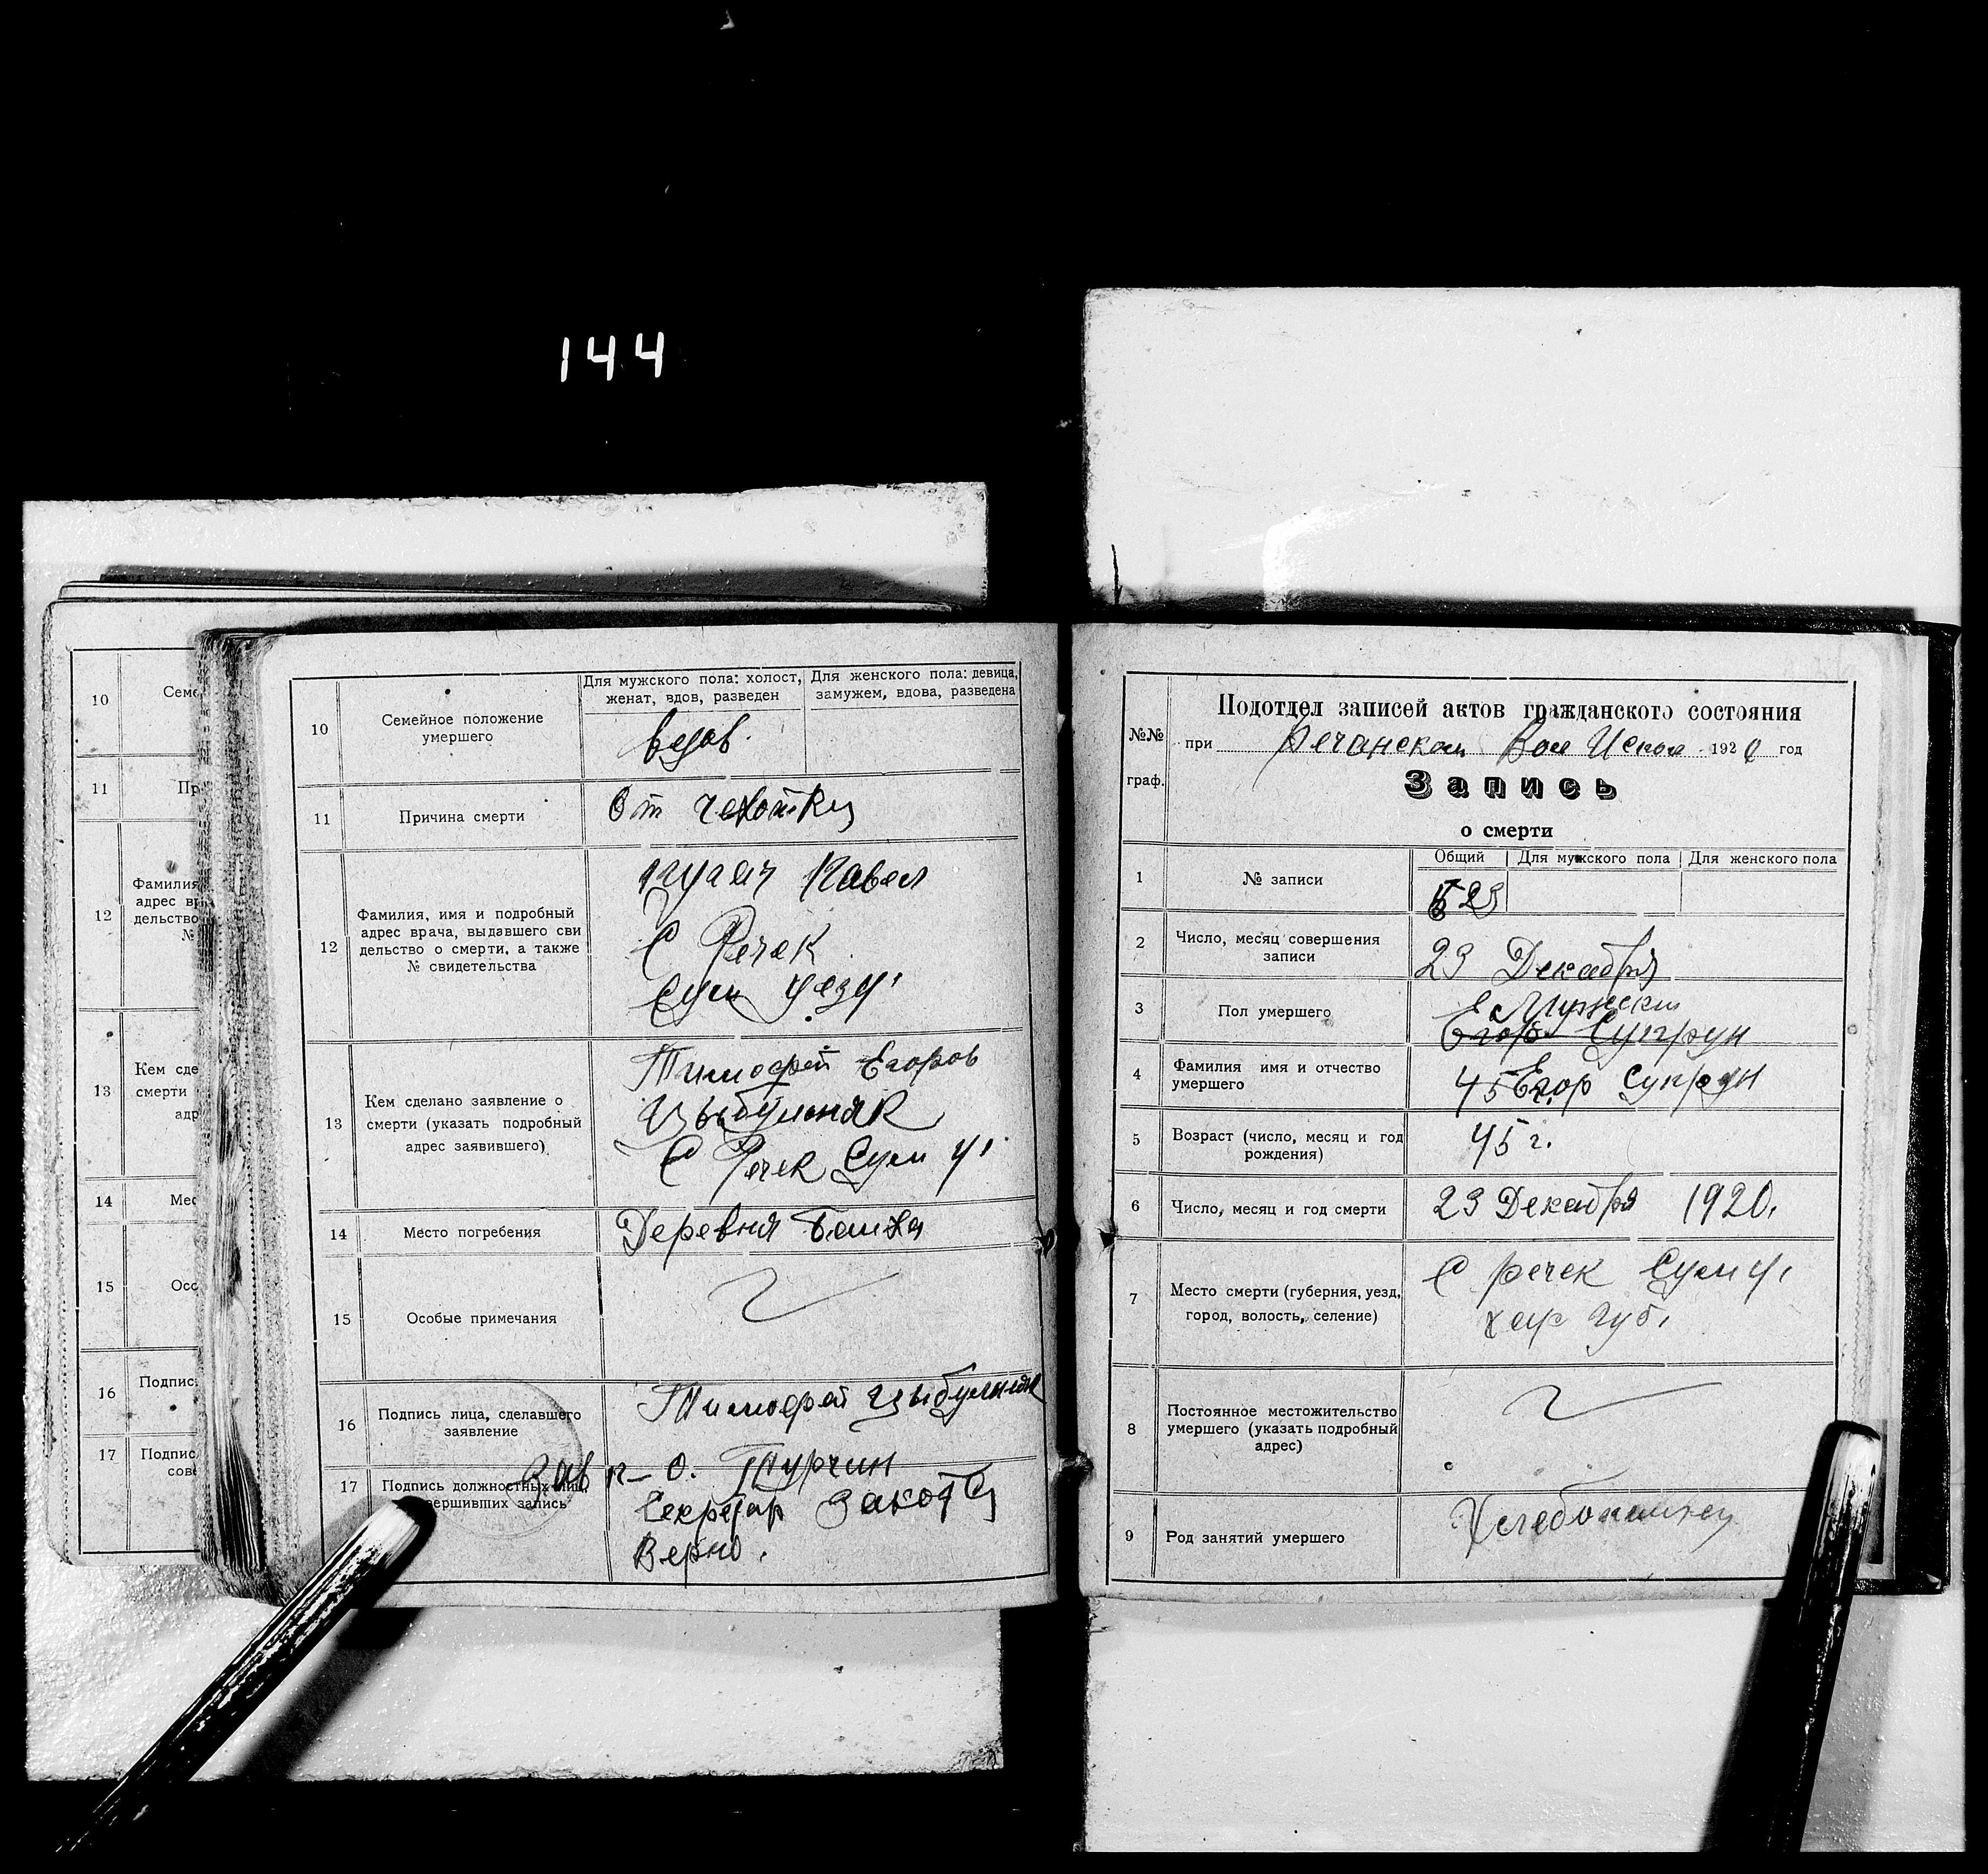 144
10
Семе
11
Пр
12
Фамилия
адрес вр
дельство
№
13
Кем сде
смерти
адр
14
Мес
15
Осо
16
Подпис
17
Подпис
сове
10
Семейное положение
умершего
Для мужского пола: холост,
женат, вдов, разведен
Для женского пола: девица,
замужем, вдова, разведена
вдов.
11
Причина смерти
От чехотки
12
Фамилия, имя и подробный
адрес врача, выдавшего сви
дельство о смерти, а также
№ свидетельства
Павел
С Речек
Сум уезу
13
Кем сделано заявление о
смерти (указать подробный
адрес заявившего)
Тимофей Егоров
Цыбульняк
С Речек Сум У.
14
Место погребения
Деревня
15
Особые примечания
16
Подпись лица, сделавшего
заявление
Тимофей Цыбульняк
17
Подпись должностных лиц,
вершивших запись
Зав п-о. Турчин
Секретар
Верно.
№№
граф.
Подотдел записей актов гражданского состояния
при Речанском Вол Испол 1920 год
Запись
о смерти
1
№ записи
Общий
Для мужского пола
Для женского пола
523
2
Число, месяц совершения
записи
23 Декабря
3
Пол умершего
Мужеский
Егор Супрун
4
Фамилия имя и отчество
умершего
45 Егор Супрун
5
Возраст (число, месяц и год
рождения)
45 г.
6
Число, месяц и год смерти
23 Декабря 1920.
7
Место смерти (губерния, уезд,
город, волость, селение)
С речек Сум У.
хар губ.
8
Постоянное местожительство
умершего (указать подробный
адрес)
9
Род занятий умершего